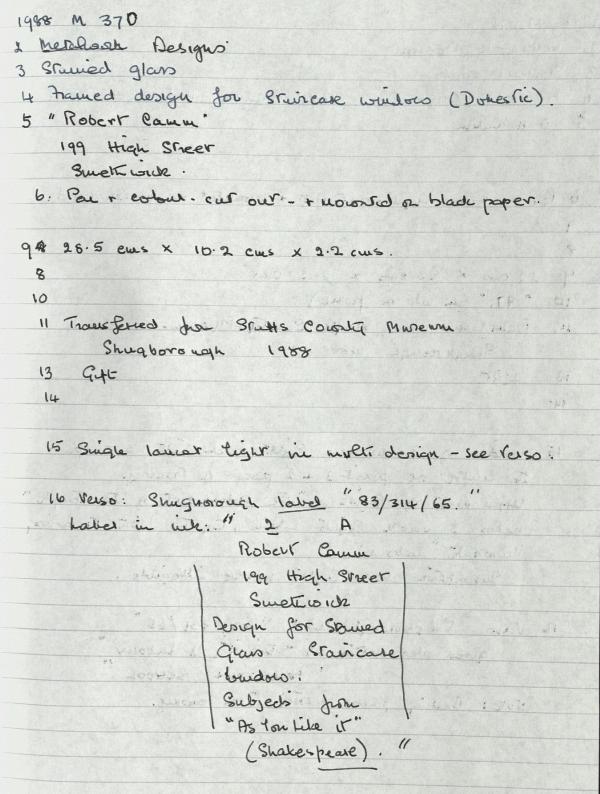 1988 M 370
2 Designs
3 Stained glass
4 Framed design for Staircase window (Domestic).
5 "Robert Camm"
199 High Street
Smethwick.
6. Pen + colour - cut out - + mounted on black paper.
9 26.5 cms x 10.2 cms x 2.2 cms.
8
10
11 Transferred from Staffs County Museum
Shugborough 1988
13 Gift
14
15 Single lancet light in multi design - see Verso.
16 Verso: Shugborough label "83/314/65."
Label in ink: " 2 A
Robert Camm
199 High Street
Smethwick
Design for Stained
Glass Staircase
Window.
Subjects from
"As You Like it"
(Shakespeare). "